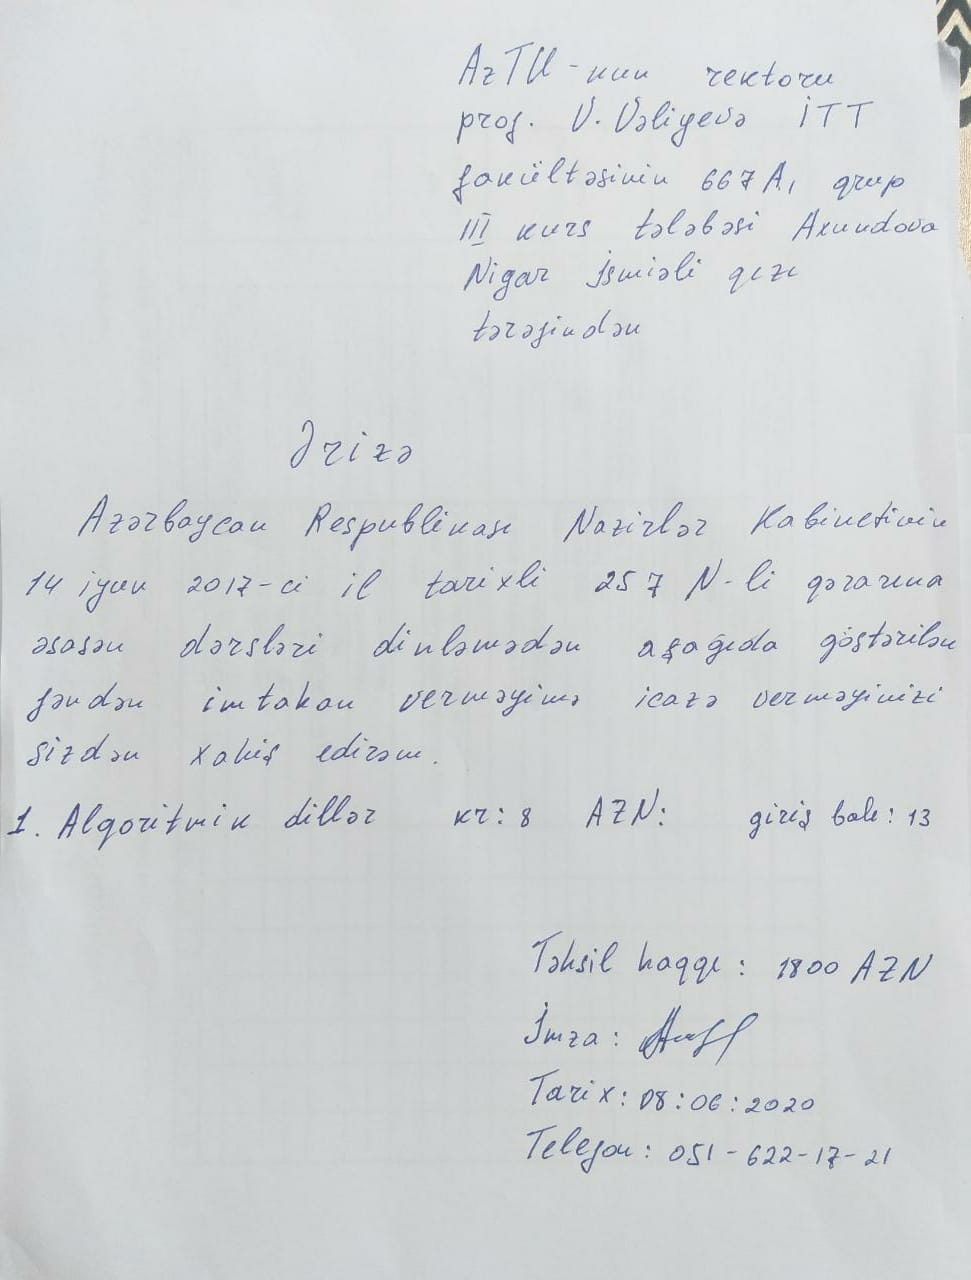 AzTU-nun rektoru
prof. V. Vəliyevə İTT
fakültəsinin 667A₁ qrup
III kurs tələbəsi Axundova
Nigar İsmiəli qızı
tərəfindən
Ərizə
Azərbaycan Respublikası Nazirlər Kabinetinin
14 iyun 2017-ci il tarixli 257 N-li qərarına
əsasən dərsləri dinləmədən aşağıda göstərilən
fəndən imtahan verməyimə icazə verməyinizi
sizdən xahiş edirəm.
1. Alqoritmik dillər kr: 8 AZN: giriş balı: 13
Təhsil haqqı: 1800 AZN
İmza:
Tarix: 08:06:2020
Telefon: 051-622-17-21